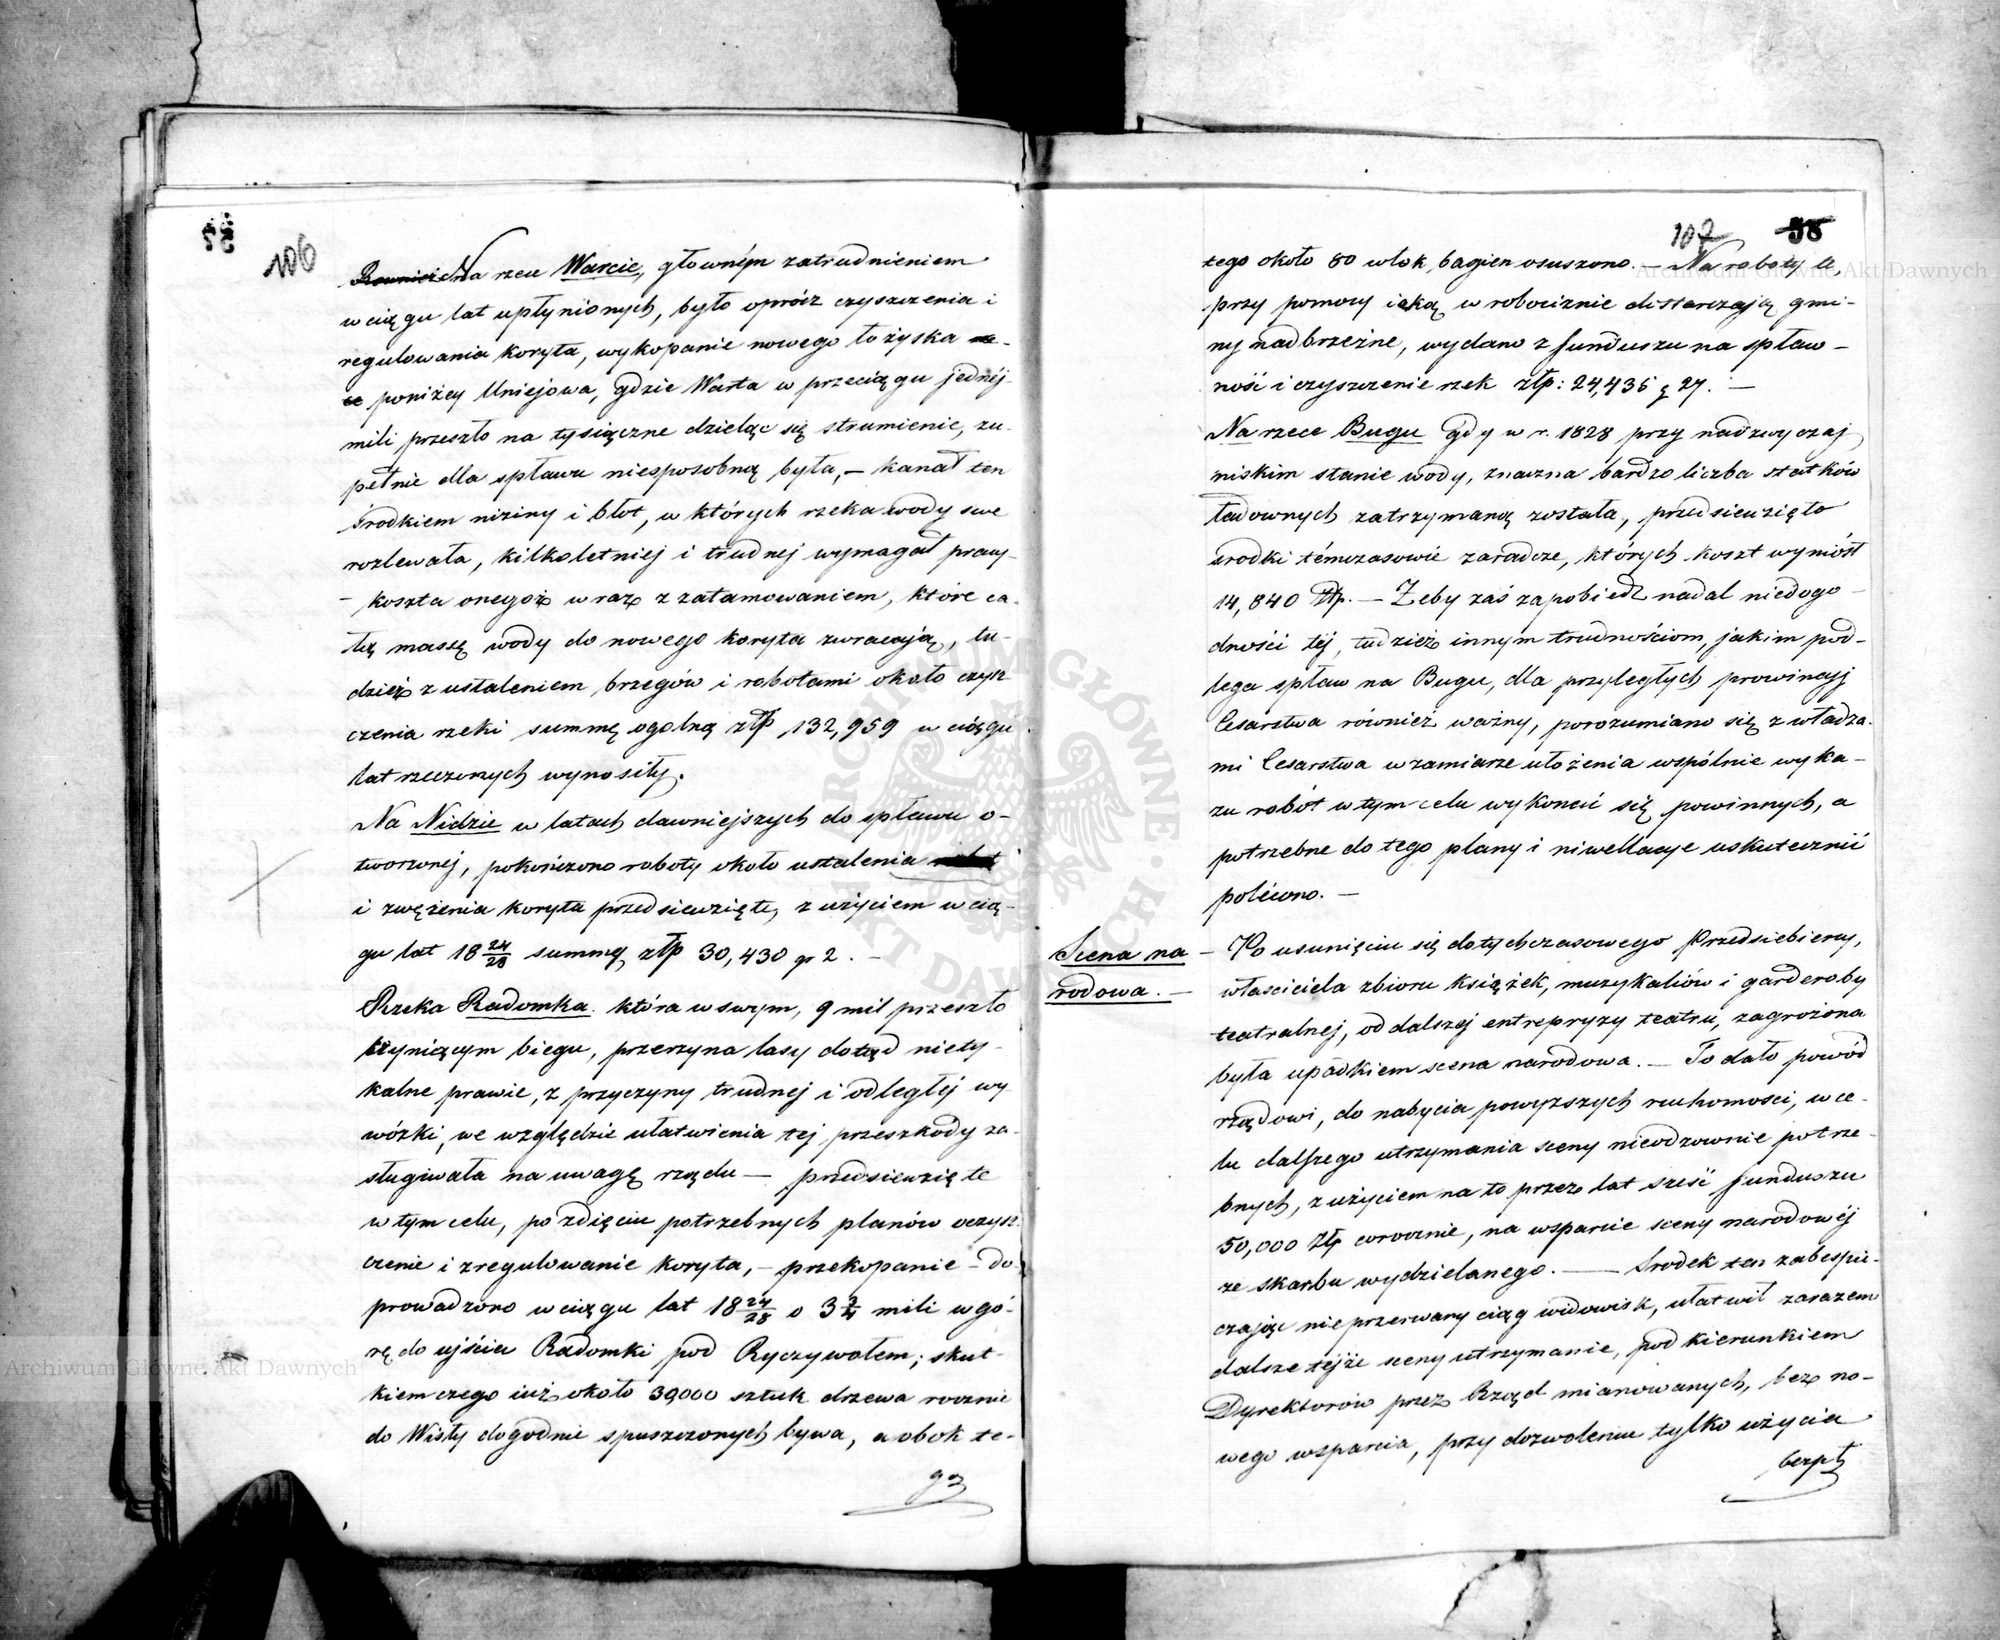 106
Na rzece Warcie, głownym zatrudnieniem
w ciągu lat upłynionych, było oprócz czyszczenia i
regulowania koryta, wykopanie nowego łożyska
poniżey Uniejowa, gdzie Warta w przeciągu jednéj
mili przeszło na tysiączne dzieląc się strumienie, zu-
pełnie dla spławu niesposobną była, – kanał ten
środkiem niziny i błot, w których rzeka wody swe
rozlewała, kilkoletniej i trudnej wymagał pracy
– koszta onegoż wraz z zatamowaniem, które ca-
łą massę wody do nowego koryta zwracają, tu-
dzież z ustaleniem brzegów i robotami około czysz
czenia rzeki summę ogolną złp 132,959 w ciągu
lat rzeczonych wynosiły.
Na Nidzie w latach dawniejszych do spławu o-
tworzonej, pokończono roboty około ustalenia
i zwężenia koryta przedsięwzięte, z użyciem w cią-
gu lat 18 24/28 summy złp 30,430 gr 2. –
Rzeka Radomka która w swym, 9 mil przeszło
czyniącym biegu, przerzyna lasy dotąd niety-
kalne prawie, z przyczyny trudnej i odległéj wy-
wózki, we względzie ułatwienia tej przeszkody za-
sługiwała na uwagę rządu – przedsięwzięte
w tym celu, po zdięciu potrzebnych planów oczysz
czenie i zregulowanie koryta, – przekopanie – do-
prowadzono w ciągu lat 18 24/28 o 3 3/4 mili w gó-
rę do ujścia Radomki pod Ryczywołem; skut-
kiem czego już około 30,000 sztuk drzewa rocznie
do Wisły dogodnie spuszczonych bywa, a obok te-
go
107 58
tego około 80 włok bagien osuszono. – Na roboty te
przy pomocy iaką w robociznie dostarczają gmi-
ny nadbrzeżne, wydano z funduszu na spław-
ność i czyszczenie rzek złp: 24,435 g 27. –
Na rzece Bugu gdy w r. 1828 przy nadzwyczaj
niskim stanie wody, znaczna bardzo liczba statków
ładownych zatrzymaną została, przedsięwzięto
srodki témczasowie zaradcze, których koszt wyniósł
14,840 złp. – Żeby zaś zapobiedz nadal niedogo-
dności téj, tudzież innym trudnościom, jakim pod-
lega spław na Bugu, dla przyległych prowincyj
Cesarstwa również ważny, porozumiano się z władza-
mi Cesarstwa w zamiarze ułożenia wspólnie wyka-
zu robót w tym celu wykonać się powinnych, a
potrzebne do tego plany i niwellacye uskutecznić
polécono. –
Scena na
rodowa. –
– Po usunięciu się dotychczasowego Przedsiebiercy,
własciciela zbioru książek, muzykaliów i garderoby
teatralnej, od dalszej entrepryzy teatru, zagrożona
była upadkiem scena narodowa. – To dało powód
rządowi, do nabycia powyższych ruchomości, w ce-
lu dalszego utrzymania sceny nieodzownie potrze-
bnych, z użyciem na to przez lat sześć funduszu
50,000 złp corocznie, na wsparcie sceny narodowéj
ze skarbu wydzielanego. – Srodek ten zabespie-
czając nieprzerwany ciąg widowisk, ułatwił zarazem
dalsze téjże sceny utrzymanie, pod kierunkiem
Dyrektorów przez Rząd mianowanych, bez no-
wego wsparcia, przy dozwoleniu tylko użycia
bezpł
Archiwum Główne Akt Dawnych
Archiwum Główne Akt Dawnych
ARCHIWUM GŁÓWNE AKT DAWNYCH